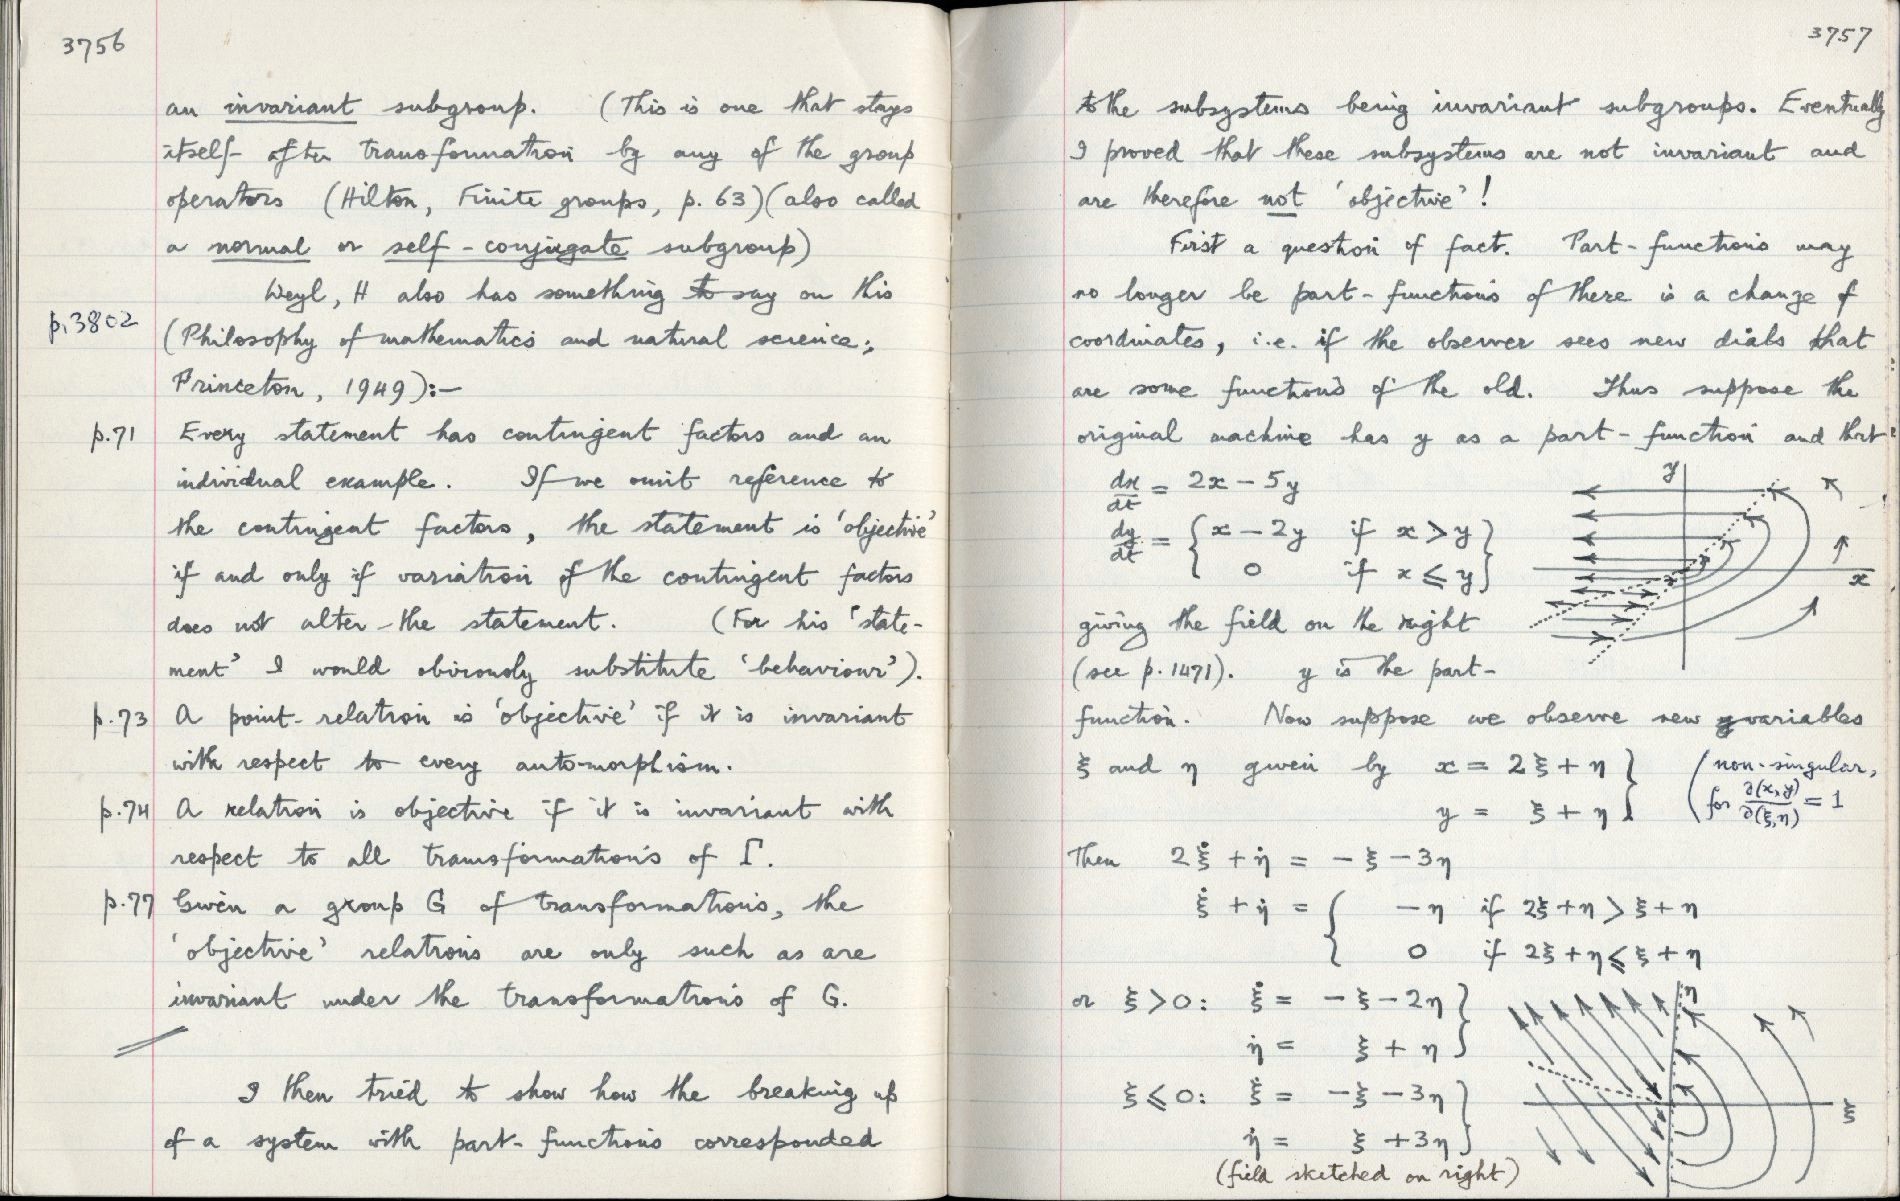 3756
an invariant subgroup. (This is one that stays
itself after transformation by any of the group
operators (Hilton, Finite groups, p. 63)(also called
a normal or self-conjugate subgroup)
Weyl, H also has something to say on this
p.3802
(Philosophy of mathematics and natural science;
Princeton, 1949):—
p.71 Every statement has contingent factors and an
individual example. If we omit reference to
the contingent factors, the statement is 'objective'
if and only if variation of the contingent factors
does not alter the statement. (For his 'state-
ment' I would obviously substitute 'behaviour').
p.73 A point-relation is 'objective' if it is invariant
with respect to every auto-morphism.
p.74 A relation is objective if it is invariant with
respect to all transformations of Γ.
p.77 Given a group G of transformations, the
'objective' relations are only such as are
invariant under the transformations of G.
I then tried to show how the breaking up
of a system with part-functions corresponded
3757
to the subsystems being invariant subgroups. Eventually
I proved that these subsystems are not invariant and
are therefore not 'objective'!
First a question of fact. Part-functions may
no longer be part-functions if there is a change of
coordinates, i.e. if the observer sees new dials that
are some functions of the old. Thus suppose the
original machine has y as a part-function and that
dx/dt = 2x − 5y
dy/dt = { x − 2y if x > y }
0 if x ⩽ y
y
x
giving the field on the right
(see p. 1471). y is the part-
function. Now suppose we observe new variables
ξ and η given by x = 2ξ + η }
y = ξ + η
(non-singular,
for ∂(x,y)/∂(ξ,η) = 1
Then 2ξ̇ + η̇ = −ξ − 3η
ξ̇ + η̇ = { −η if 2ξ + η > ξ + η
0 if 2ξ + η ⩽ ξ + η
or ξ > 0: ξ̇ = −ξ − 2η }
η̇ = ξ + η
ξ ⩽ 0: ξ̇ = −ξ − 3η }
η̇ = ξ + 3η
(field sketched on right)
η
ξ